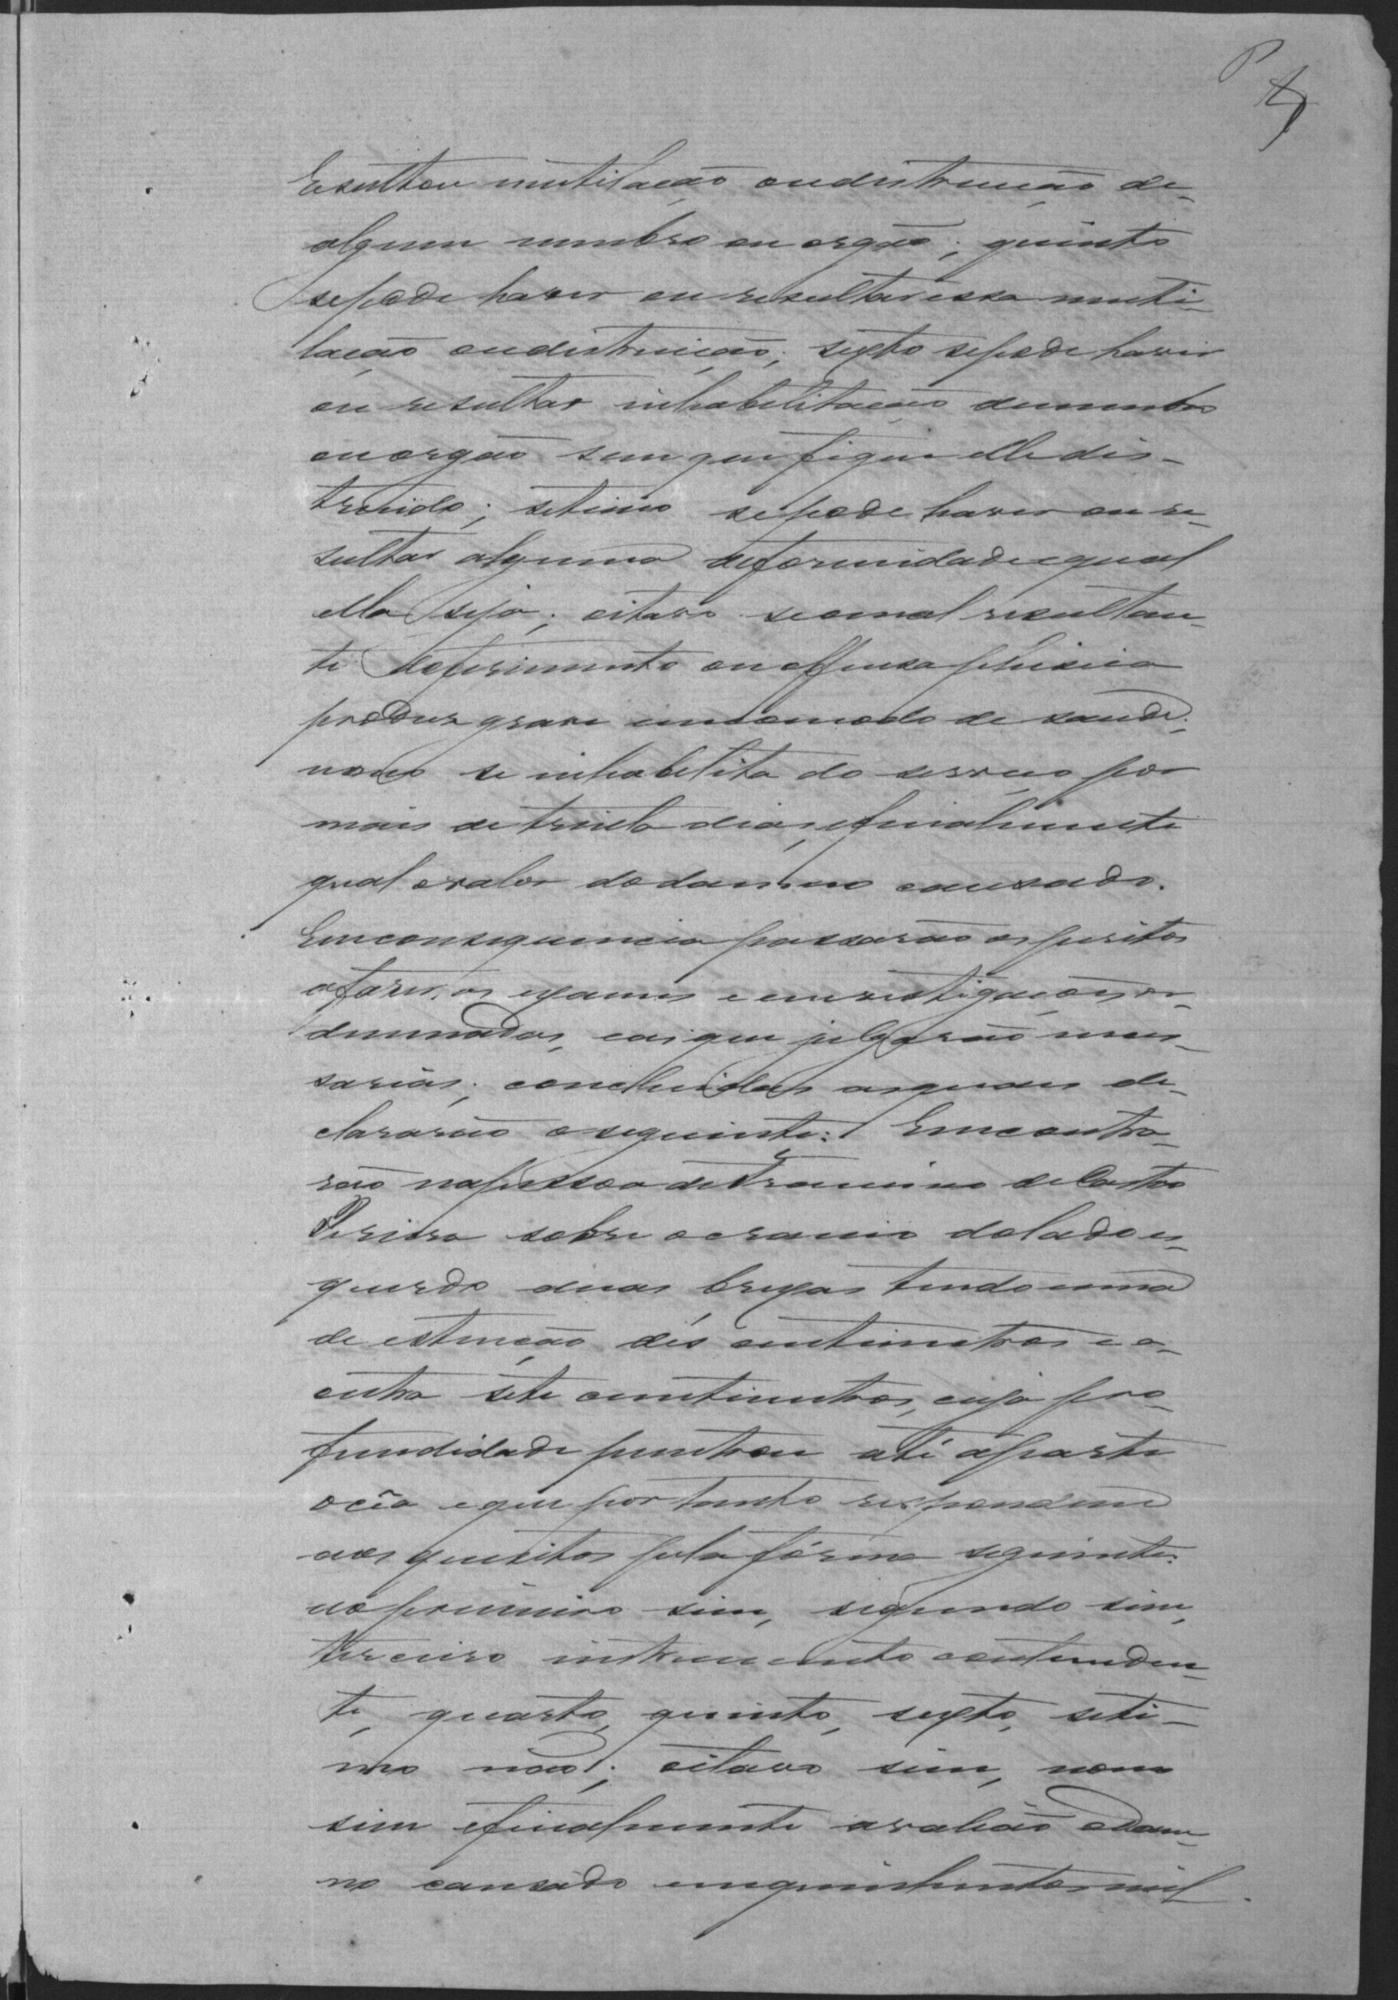 resultou mutilação ou distruição de
algum membro ou orgão; quinto
se pode haver ou resultar essa muti-
lação ou distruição; sexto se pode haver
ou resultar inhabilitação de membro
ou orgão sem que fique elle dis-
truido; setimo se pode haver ou re-
sultar alguma deformidade e qual
ella seja; oitavo se o mal resultan-
te do ferimento ou offensa phisica
produz grave incomodo de saude;
nono se inhabilita do serviço por
mais de trinta dias, e finalmente
qual o valor do damno causado.
Em consequencia passarão os peritos
a fazer os exames e investigações or-
dennadas, e as que julgarão neces-
sarias; concluidas as quaes de-
clararão o seguinte: Encontra-
rão na pessoa de Francisco de Castro
Pereira sobre o craneo do lado es-
querdo duas brexas tendo uma
de estenção dés centimetros e a
outra sete centimetros, cuja pro-
fundidade penetrou até a parte
ocia e que portanto respondem
aos quesitos pela fórma seguinte:
ao primeiro sim, segundo sim,
terceiro instrumento contunden-
te, quarto, quinto, sexto, seti-
mo não; oitavo sim, nono
sim e finalmente avalião o dam-
no causado em quinhentos mil